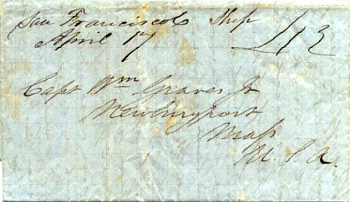 San Francisco Ship
April 17
Capt Wm Graves Jr
Newburyport
Mass
U. S. A.